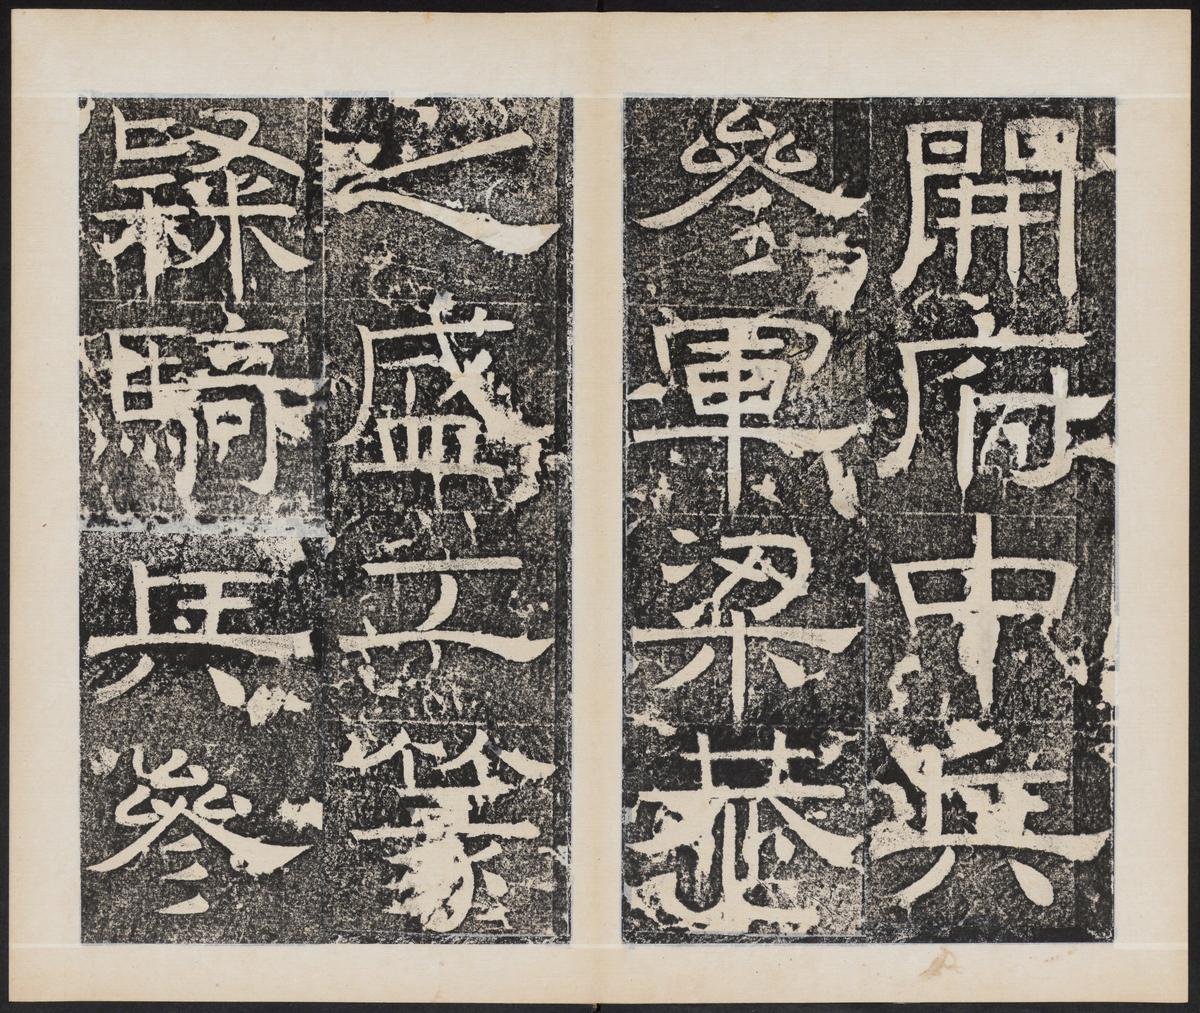 開府中兵
參軍梁恭
之盛工篆
隸騎兵參